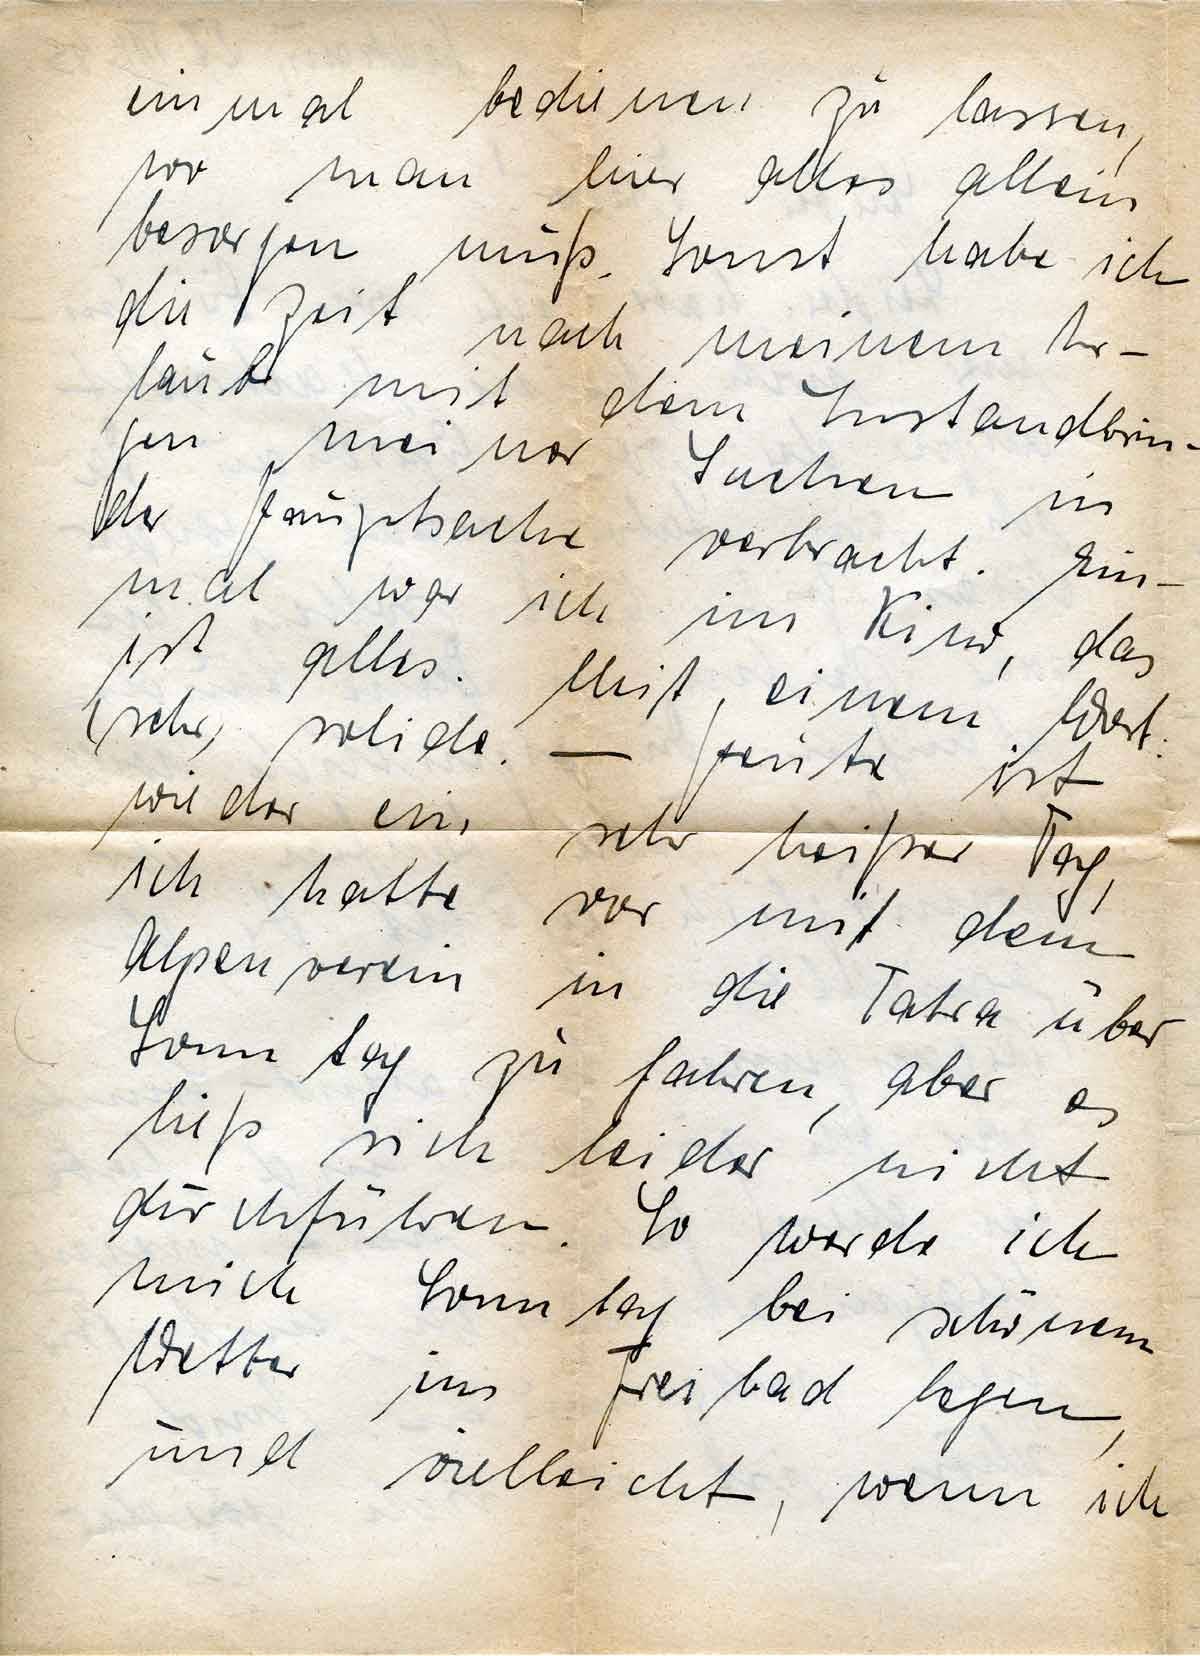 einmal bedienen zu lassen,
wo man hier alles allein
besorgen muß. Sonst habe ich
die Zeit nach meinem Ur-
laub mit dem Instandbrin-
gen meiner Sachen in
der Hauptsache verbracht. Ein-
mal war ich im Kino, das
ist alles. Mit einem Wort.
(sehr) solide. — Heute ist
wieder ein sehr heißer Tag,
ich hatte vor mit dem
Alpenverein in die Tatra über
Sonntag zu fahren, aber es
ließ sich leider nicht
durchführen. So werde ich
mich Sonntag bei schönem
Wetter ins Freibad legen,
und vielleicht, wenn ich